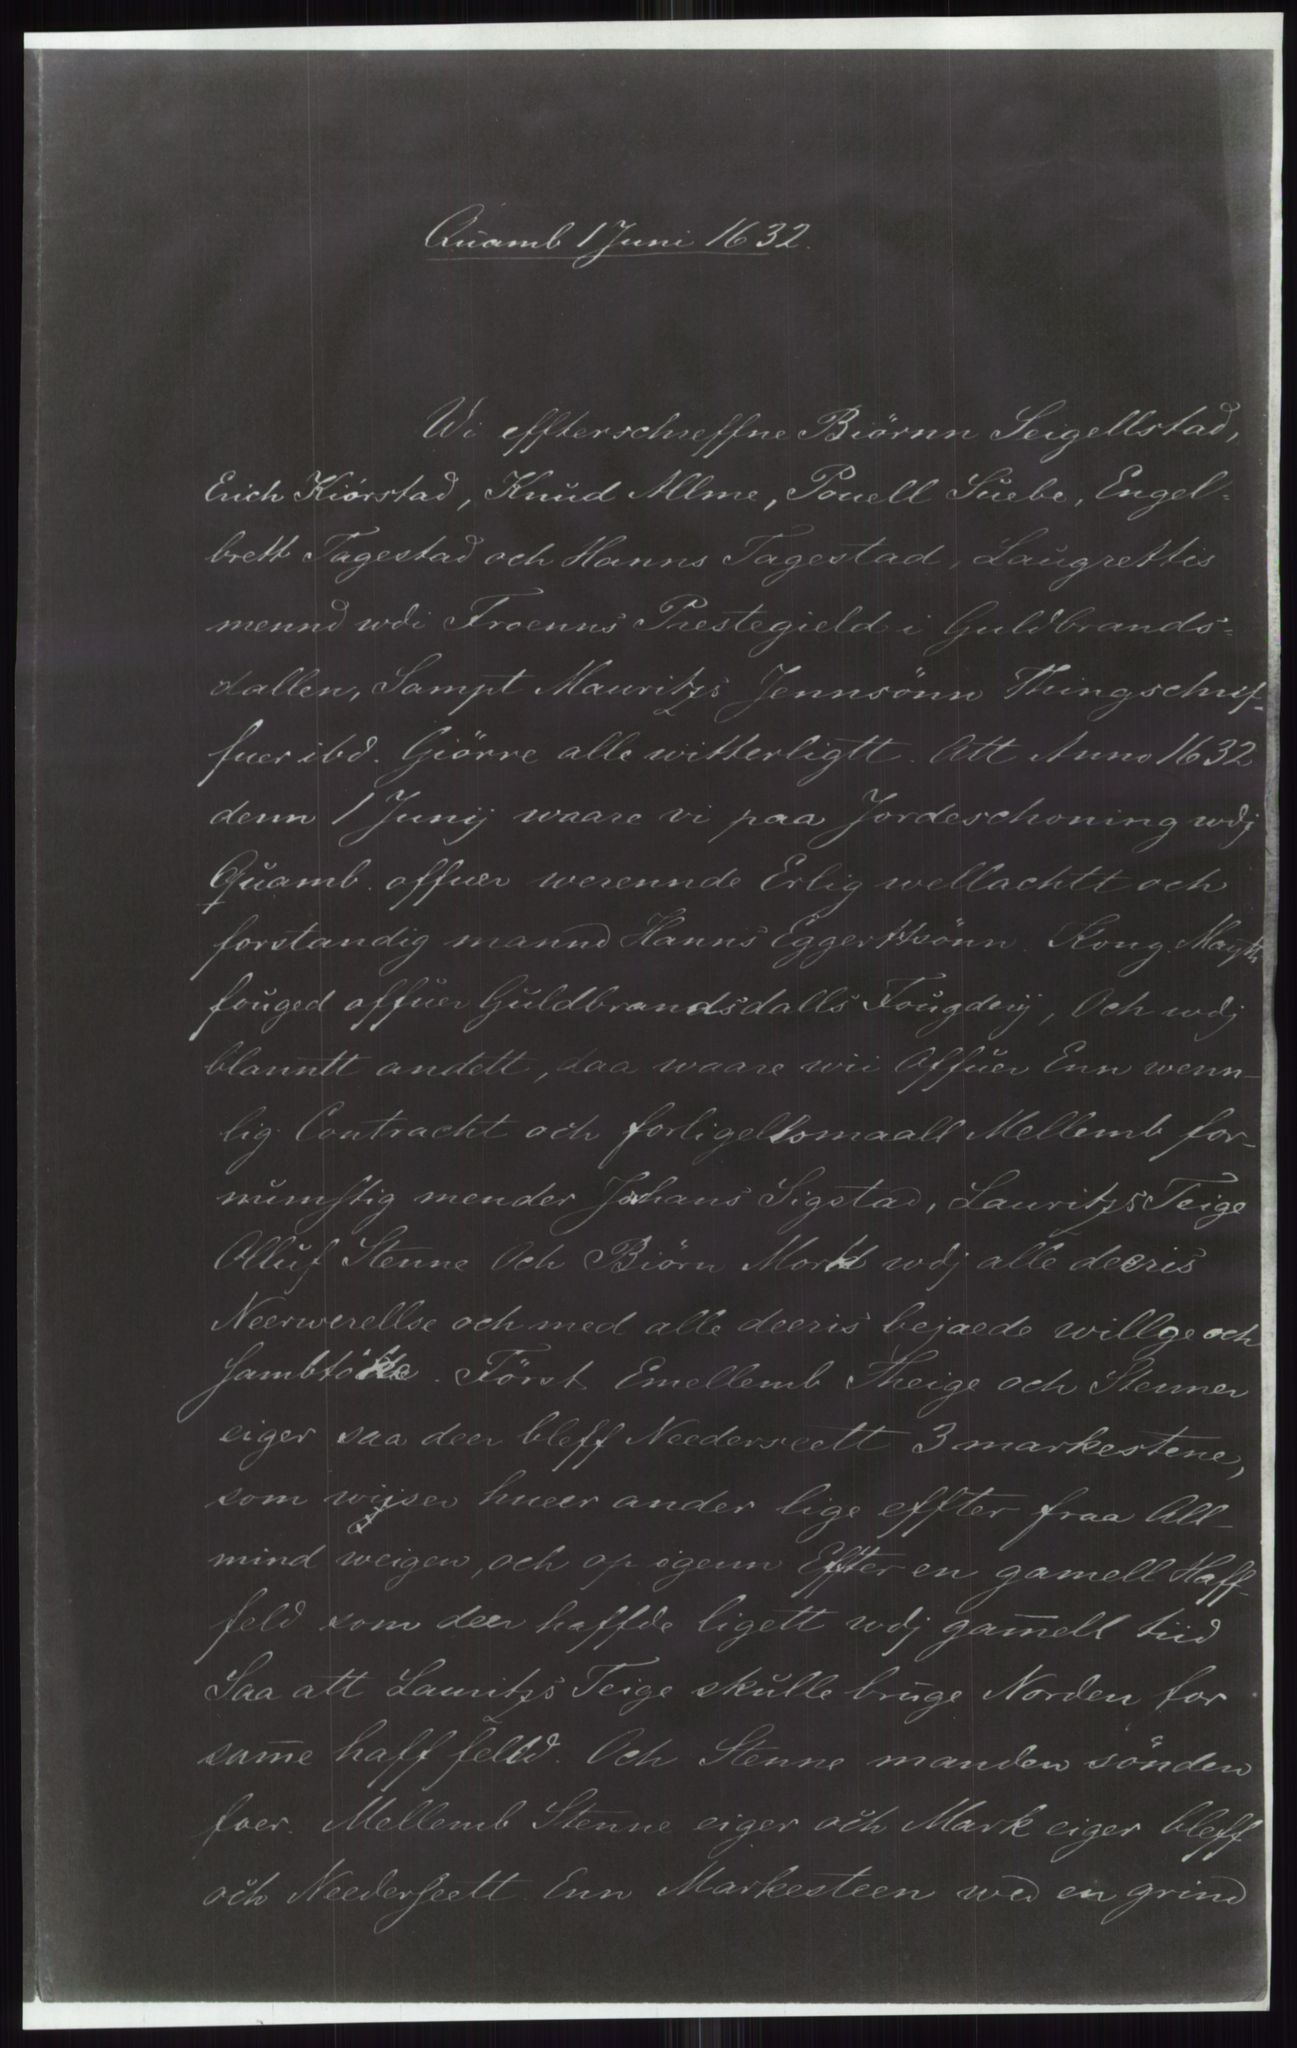 Quamb 1 Juni 1632.
Wi effterschreffne Biörnn Seigellstad,
Erich Kiörstad, Knud Allme, Pouell Suebe, Engel-
brett Tagestad och Hanns Tagestad, Laugrettis
mennd wdi Froenns Prestegield i Guldbrands-
dallen, Sampt Mauritzs Jennsönn Thingschref-
fuer ibd. Giörre alle witterligtt. Att Anno 1632
denn 1 Junij waare vi paa Jordeschoning wdj
Quamb. offuer werennde Erlig wellachtt och
forstandig mannd Hanns Eggertsönn. Kong. Maytz
fouged offuer Guldbrandsdalls Fougderij, Och wdj
blanntt andett, daa waare wii Offuer Enn wenn-
lig Contracht och forligelsomaall Mellemb for-
numftig mender Johans Sigstad, Lauritzs Teige
Olluf Stenne Och Biörn Mork wdj alle deeris
Neerwerellse och med alle deeris bejaede willge och
Sambtöcke. Först Emellemb Theige och Stenner
eiger saa deer bleff Needersett 3 markestene,
som wijser hueer ander lige effter fraa All-
mind weigen, och op igenn Effter en gamell Haff-
feld som deer haffde ligett wdj gam̄ell tiid
Saa att Lauritzs Teige skulle bruge Norden for
sam̄e haff felld. Och Stenne manden sönden
foer. Mellemb Stenne eiger och Mark eiger bleff
och Needersett Enn Markesteen wed en grind